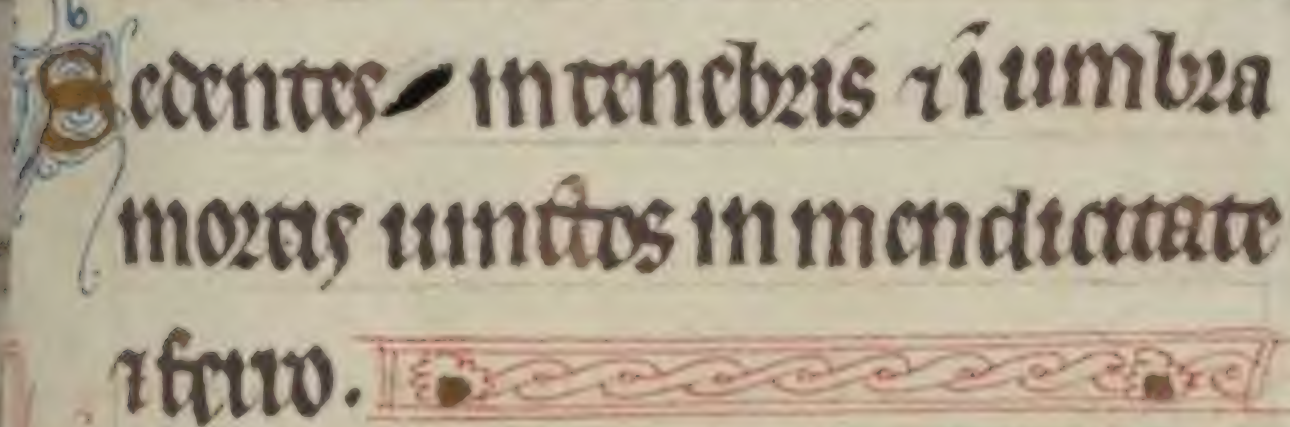 Sedentes in tenebris ⁊ ī umbra
mortis uinctos in mendicitate
⁊ ferro.